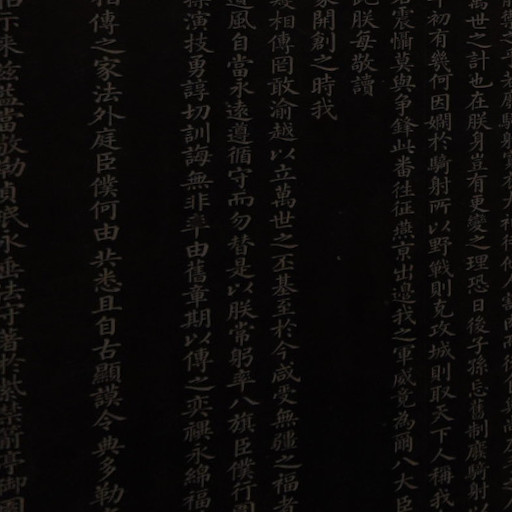 萬世之計也在朕身豈有更變之理恐日後子孫忘舊制廢騎射以
初有幾何因嫺於騎射所以野戰則克攻城則取天下人稱我
震懾莫與爭鋒此番往征燕京出邊我之軍威竟為爾八大臣
此朕每敬讀
家開創之時我
相傳罔敢渝越以立萬世之丕基至於今咸受無疆之福者
遺風自當永遠遵循守而勿替是以朕常躬率八旗臣僕行圍
操演技勇諄切訓誨無非率由舊章期以傳之奕禩永綿福
相傳之家法外庭臣僕何由共悉且自古顯謨令典多勒
示來茲益當敬勒貞珉永垂法守著於紫禁箭亭御園